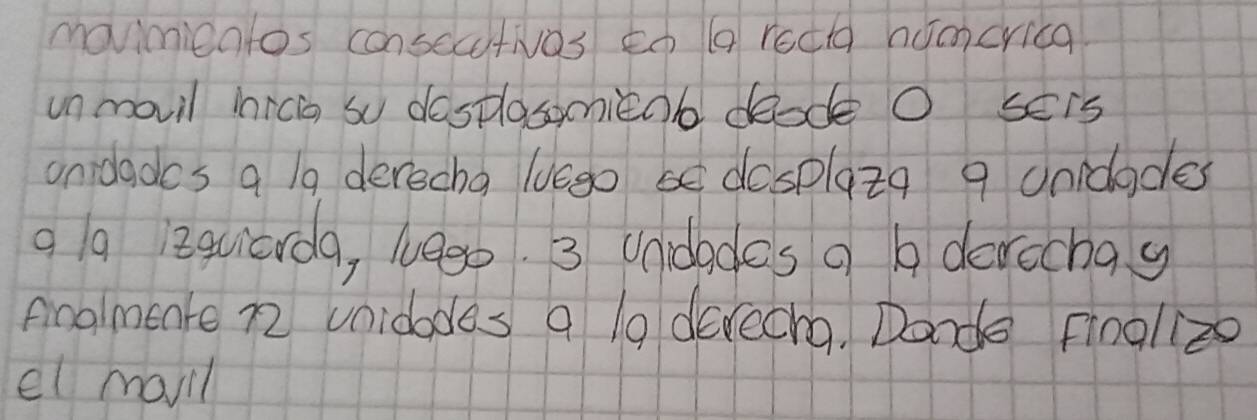 movimientos consecutivos en la recta númerica
un movil inicia su desplasamiento desde 0 seis
unidades a la derecha luego se desplaza 9 unidades
a la izquierda, luego. 3 unidades a la derecha y
finalmente 12 unidades a la derecha. Donde finalizo
el movil